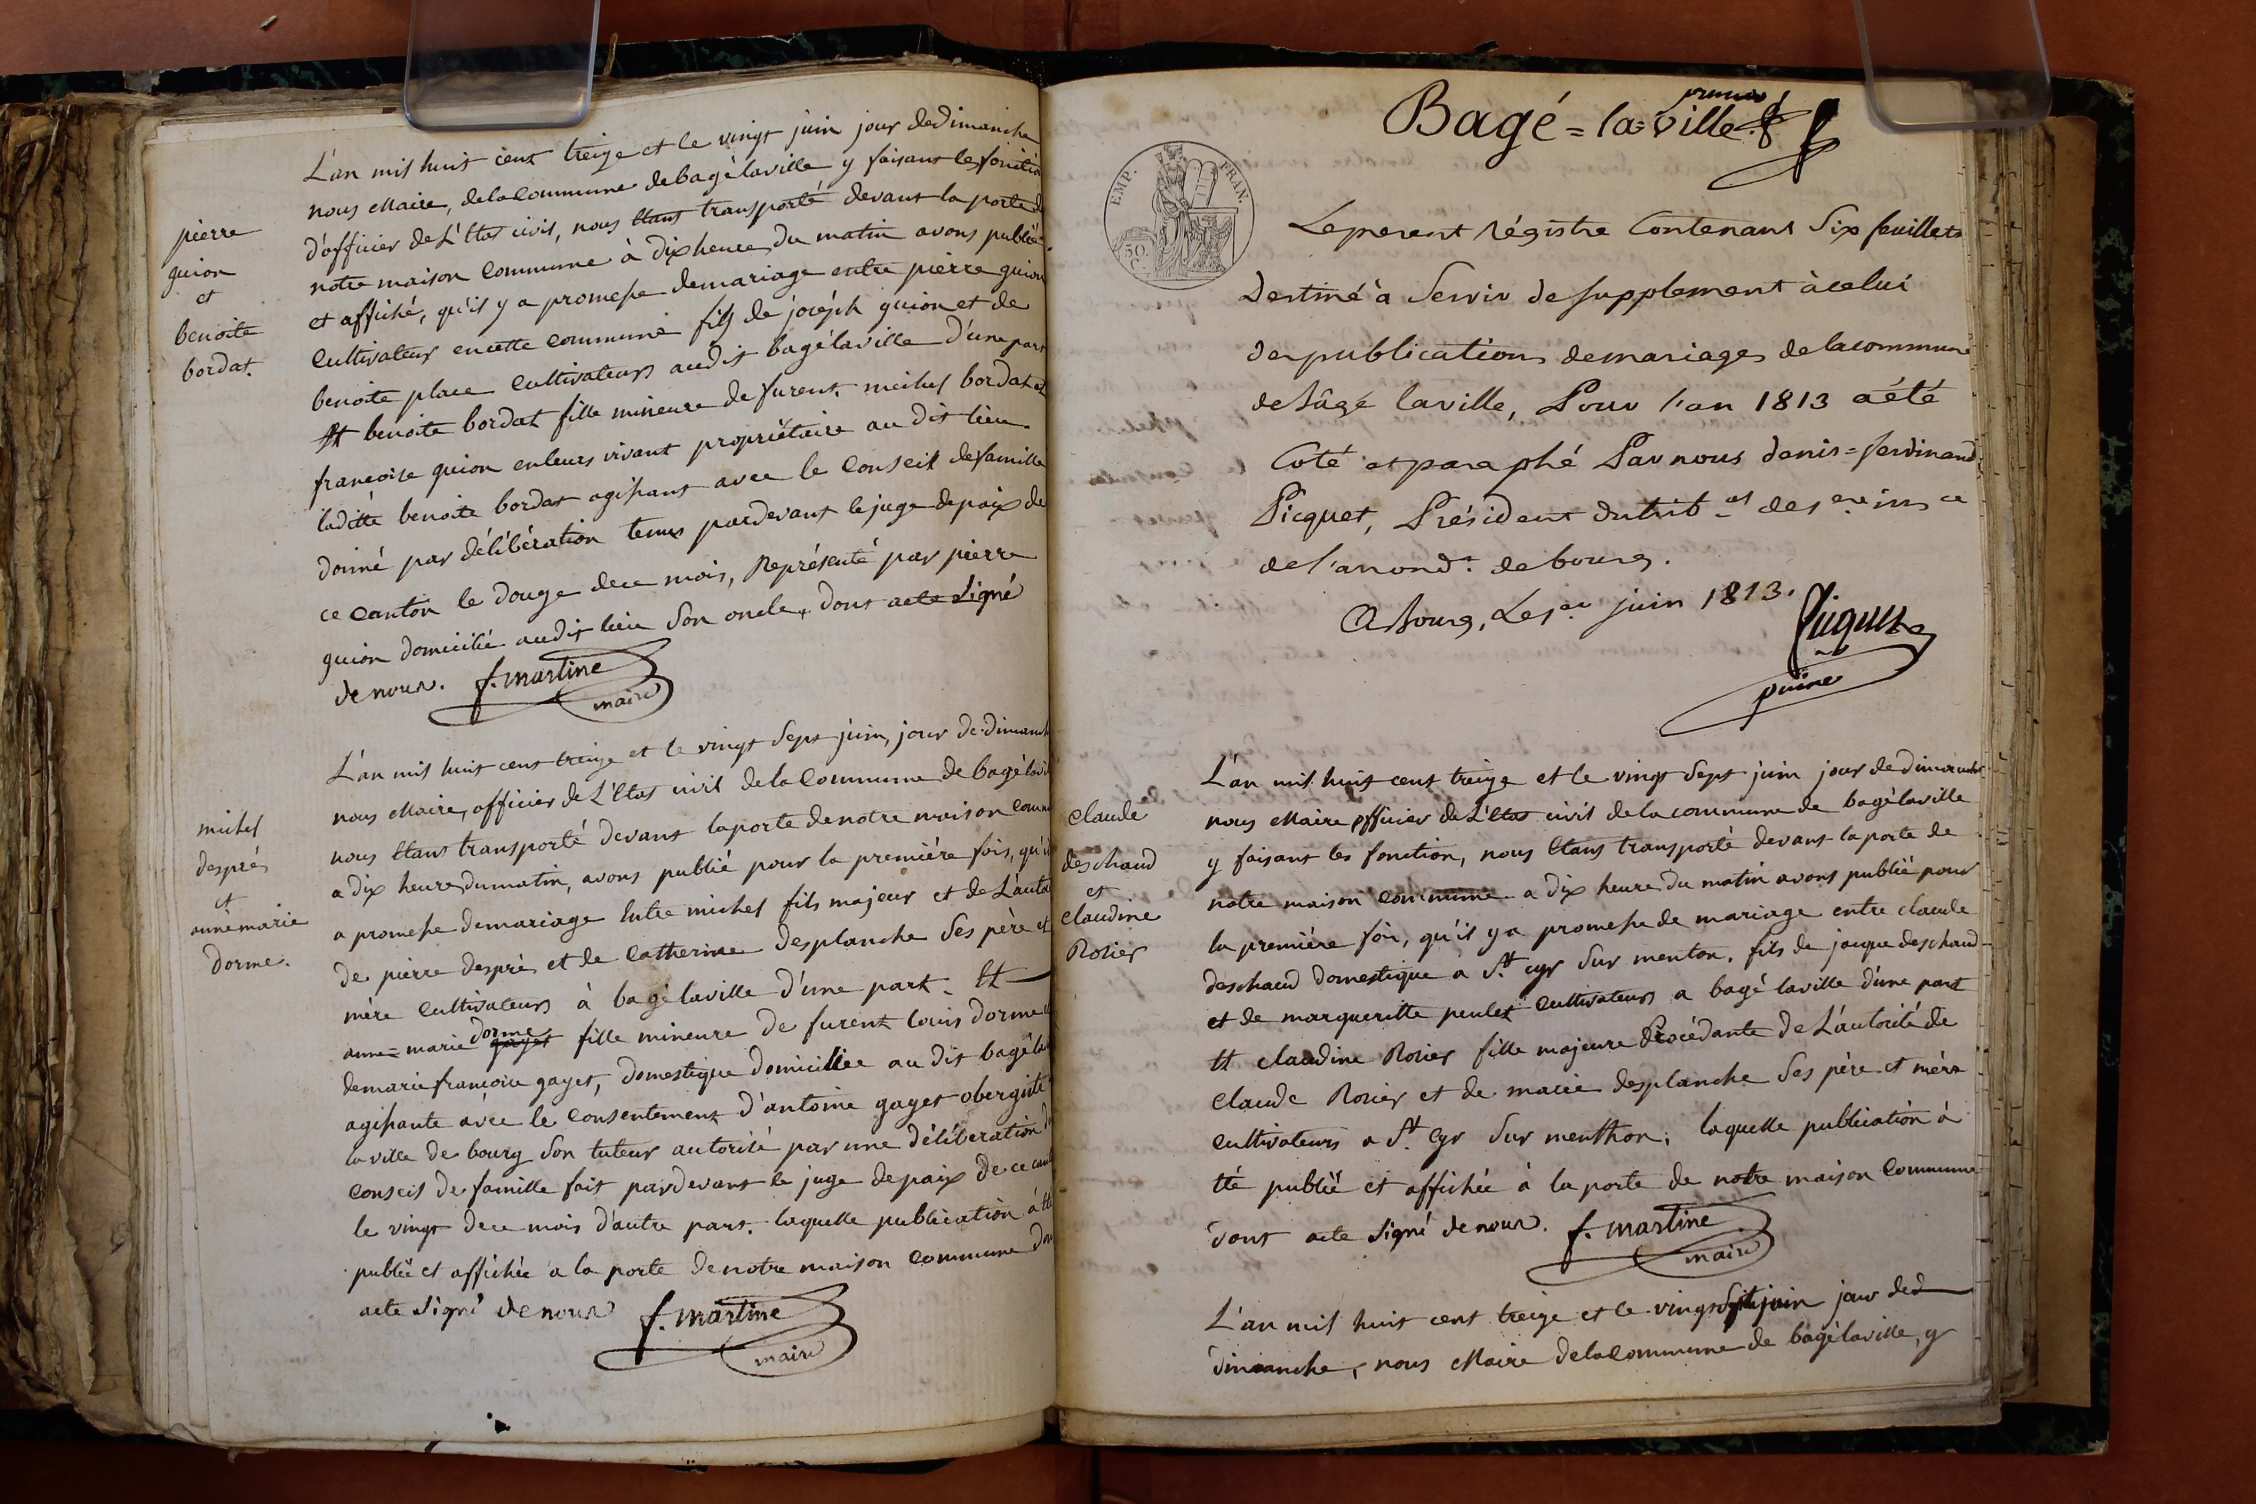 pierre
guion
et
benoite
bordat.
L'an mil huit cent treize et le vingt juin jour dedimanche
nous Maire, delaCommune debagélaville y faisant les fonction
d'officier deL'Etat civil, nous Etant transporté devant la porte de
notre maison Commune à dix heure du matin avons publié
et affiché, qu'il y a promesse demariage entre pierre guion
Cultivateur encette commune fils de joséph guion et de
benoite place Cultivateurs audit bagélaville D'une part
Et benoite bordat fille mineure de furent michel bordat et
francoise guion enleurs vivant propriétaire au dit lieu.
laditte benoite bordat agissant avec le Conseil defamille
donné par délibération tenus pardevant lejuge depaix de
ce canton le douze dece mois, Représenté par pierre
guion domicilié audit lieu Son oncle, dont acte Signé
de nous. f. martine
maire
michel
després
et
anne marie
dorme.
L'an mil huit cent treize et le vingt Sept juin, jour de dimanche
nous Maire, officier de L'Etat civil delaCommune de bagélavil
nous Etant transporté devant laporte denotre maison comm
a dix heure dumatin, avons publié pour la première fois, qu'il
a promesse demariage Entre michel fils majeur et de L'auto
de pierre després et de Catherine desplanche Ses père et
mère Cultivateurs à bagé laville D'une part. Et
anne=marie dorme gayet fille mineure de furent louis dorme et
demarie francoise gayet, domestique domicillée au dit bagélav
agissante avec le Consentement d'antoine gayet obergiste
laville de bourg Son tuteur autorisé par une délibération du
conseil de famille fait pardevant le juge depaix de ce cant
le vingt dece mois d'autre part. laquelle publication á Eté
publié et affichée a la porte denotre maison commune don
acte Signé de nous f. martine
maire
Bagé=la=ville premier
EMP. FRAN.
50 C.
Le present Régistre Contenant Six feuillets
Destiné à Servir de Supplement à celui
des publications demariages delacommune
de Bâgé laville, Pour l'an 1813 a été
Coté et paraphé Par nous denis=ferdinand
Picquet, Président du trib.al de 1.ere ins.ce
de l'arrond.t de bourg.
A Bourg, Le 1.er juin 1813.
Picquet
claude
deschaud
et
claudine
Rosier
L'an mil huit cent treize et le vingt Sept juin jour de dimanche
nous Maire officier de L'Etat civil de la commune de bagélaville
y faisant les fonction, nous Etant transporté devant la porte de
notre maison commune a dix heure du matin avons publié pour
la première fois, qu'il y a promesse de mariage entre claude
deschaud domestique a S.t cyr Sur menton, fils de jaque deschaud
et de margueritte peulet Cultivateurs a bagé laville d'une part
Et claudine Rosier fille majeure Procédante de L'autorité de
claude Rosier et de marie desplanche Ses père et mère
cultivateurs a S.t Cyr Sur menthon; laquelle publication à
Eté publié et affichée à la porte de notre maison Commune
dont acte Signé de nous. f. martine
maire
L'an mil huit cent treize et le vingt Sept juin jour de d
dimanche, nous Maire delaCommune de bagélaville, y